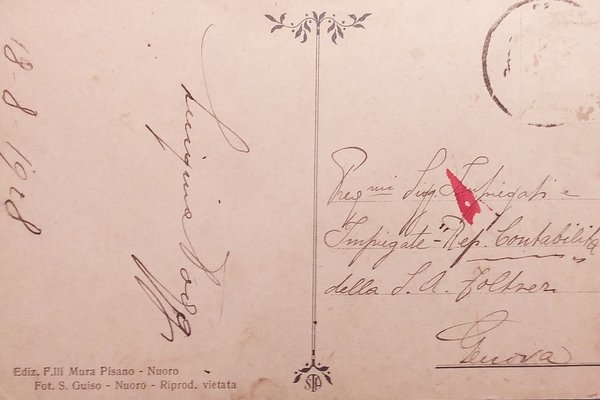 18-8-1928
Preg.mi Sig. Impiegati e
Impiegate - "Rep. Contabilità"
della S. A. Foltzer
Genova
Ediz. F.lli Mura Pisano - Nuoro
Fot. S. Guiso - Nuoro - Riprod. vietata